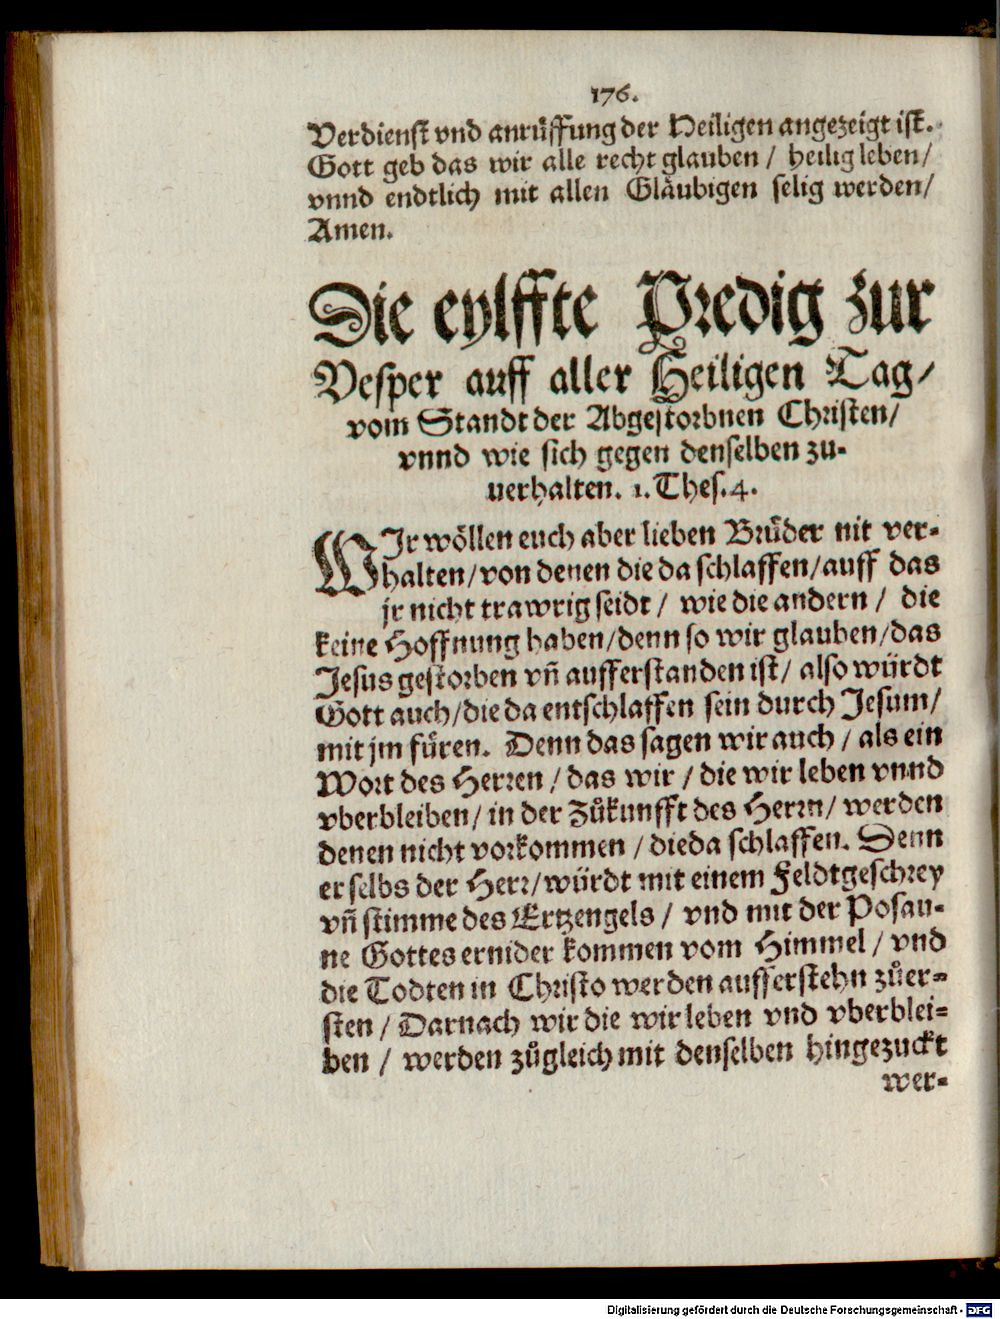 176.
Verdienst vnd anrüffung der Heiligen angezeigt ist.
Gott geb das wir alle recht glauben / heilig leben /
vnnd endtlich mit allen Gläubigen selig werden /
Amen.
Die eylffte Predig zur
Vesper auff aller Heiligen Tag /
vom Standt der Abgestorbnen Christen /
vnnd wie sich gegen denselben zu-
uerhalten. 1. Thes. 4.
WJr wöllen euch aber lieben Brüder nit ver-
halten / von denen die da schlaffen / auff das
jr nicht trawrig seidt / wie die andern / die
keine Hoffnung haben / denn so wir glauben / das
Jesus gestorben vñ aufferstanden ist / also würdt
Gott auch / die da entschlaffen sein durch Jesum /
mit jm füren. Denn das sagen wir auch / als ein
Wort des Herren / das wir / die wir leben vnnd
vberbleiben / in der Zůkunfft des Herrn / werden
denen nicht vorkommen / die da schlaffen. Denn
er selbs der Herr / würdt mit einem Feldtgeschrey
vñ stimme des Ertzengels / vnd mit der Posau-
ne Gottes ernider kommen vom Himmel / vnd
die Todten in Christo werden aufferstehn zůer-
sten / Darnach wir die wir leben vnd vberblei-
ben / werden zůgleich mit denselben hingezuckt
wer-
Digitalisierung gefördert durch die Deutsche Forschungsgemeinschaft - DFG